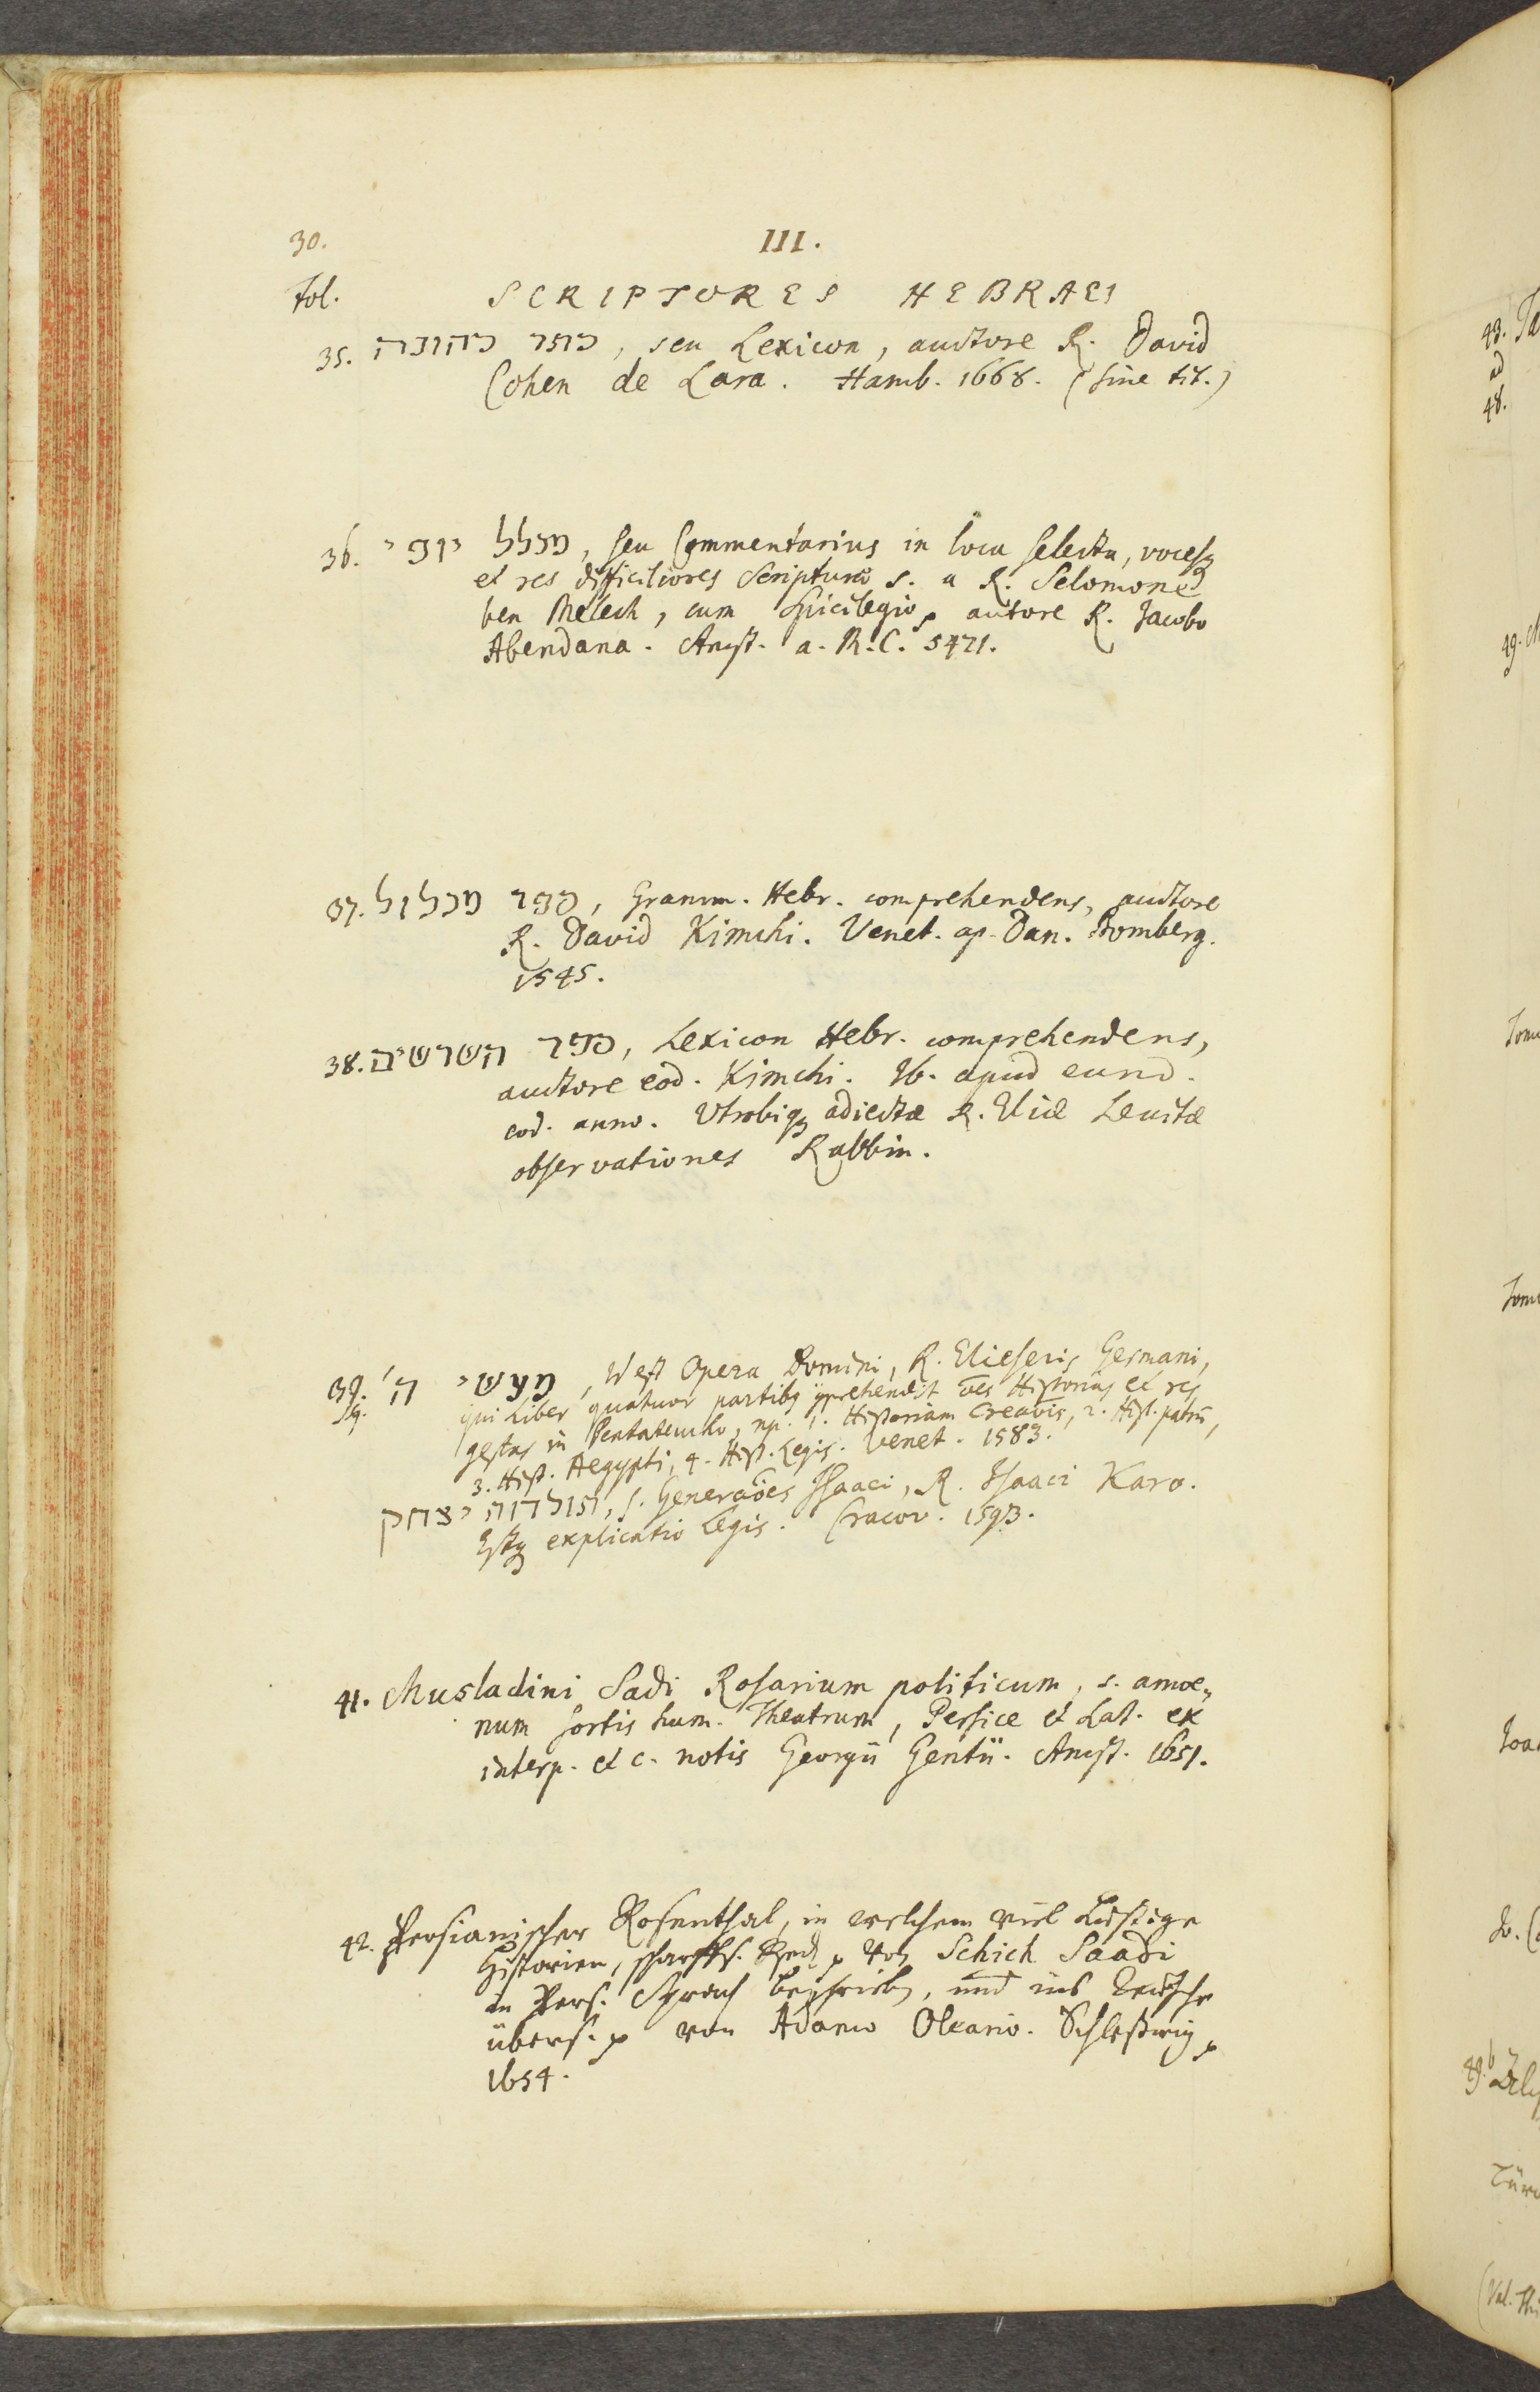 30.
III.
Fol.
SCRIPTORES HEBRAEI
35. כתר כהונה, seu Lexicon, auctore R. David
Cohen de Lara. Hamb. 1668. (sine tit.)
36. מכלל יופי, seu Commentarius in loca selecta, vocesq
et res difficiliores Scripturæ S. a R. Selomone
ben Melech, cum Spicilegio, autore R. Jacobo
Abendana. Amst. a. R. C. 5421.
37. ספר מכלול, Gramm. Hebr. comprehendens, auctore
R. David Kimchi. Venet. ap. Dan. Bomberg.
1545.
38. ספר השרשים, Lexicon Hebr. comprehendens,
auctore eod. Kimchi. Ib. apud eund.
eod. anno. Utrobiq adiectæ R. Eliæ Levitæ
observationes Rabbin.
39. מעשי ה', Opera Domini, R. Elieseris Germani,
sq. qui Liber quatuor partibq comprehendit oēs Historias et res
gestas in Pentateucho, np. 1. Historiam Creaōis, 2. Hist. patrū,
3. Hist. Aegypti, 4. Hist. Legis. Venet. 1583.
תולדות יצחק, s. Generaōes Isaaci, R. Isaaci Karo.
Estq explicatio Legis. Cracov. 1593.
41. Musladini Sadi Rosarium politicum, s. amoe„
num sortis hum. Theatrum, Persice et Lat. ex
interp. et c. notis Georgii Gentii. Amst. 1651.
42. Persianischer Rosenthal, in welchem viel Lustige
Historien, scharffs. Red von Schich Saadi
in Pers. Sprach beschrieben, und ins Deutsche
übers. von Adamo Oleario. Schleßwig,
1654.
48.
49.